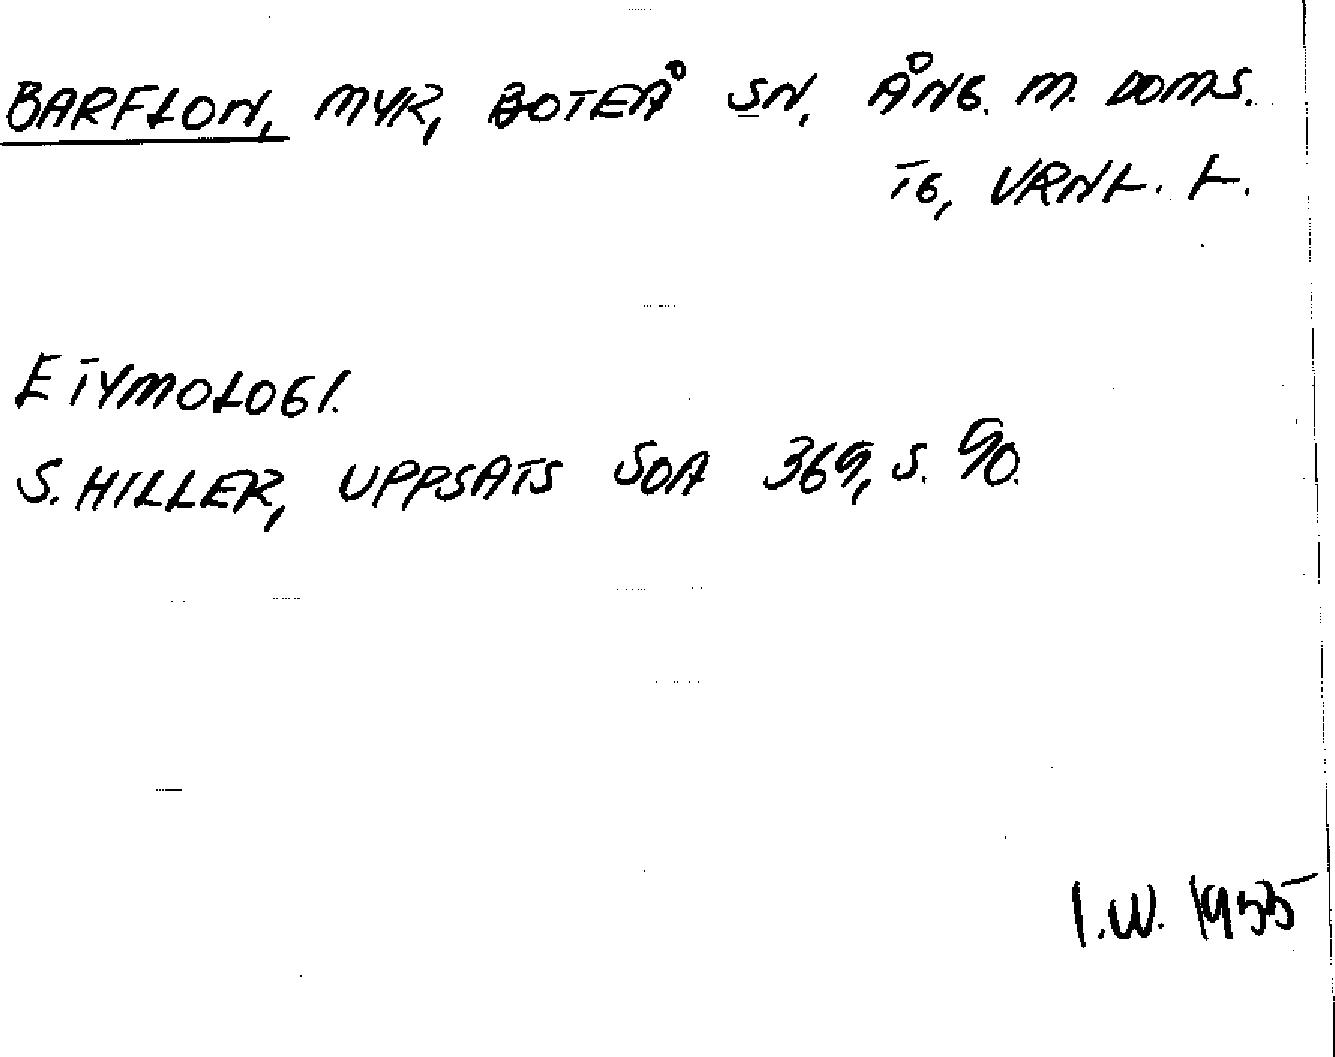 BARFLON, MYR, BOTEÅ SN, ÅNG. M. DOMS.
TG, VRNL. L.
ETYMOLOGI.
S. HILLER, UPPSATS SOA 369, S. 90.
I.W. 1955